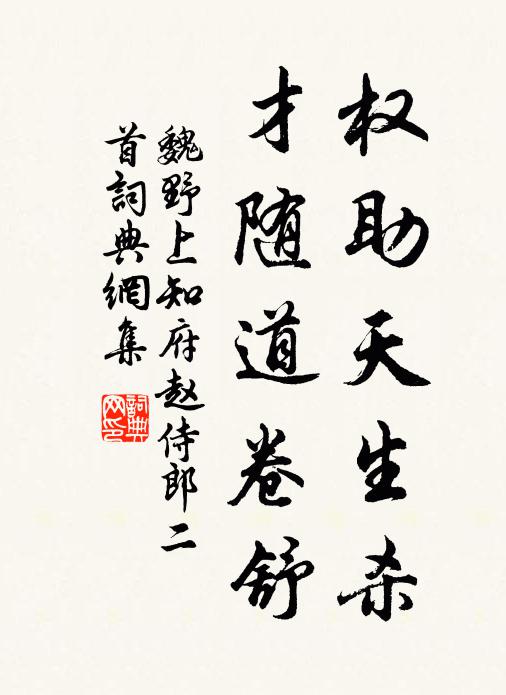 权助天生杀
才随道卷舒
魏野上知府赵侍郎二
首詞典網集
詞典
网印